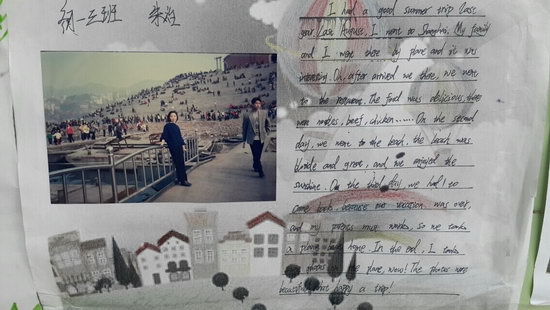 初一三班
I had a good summer trip last
year. Last August, I went to Shanghai. My family
and I went there by plane and it was
interesting. Oh, after arrived we there, we went
to the restaurant. The food was delicious, there
were noodles, beef, chicken...... On the second
day, we went to the beach, the beach was
and great, and we enjoyed the
sunshine. On the third day, we had to
come back, because our vacation was over,
and my parents must works. So we
a plane home. In the end, I
photos on the plane, wow! The photos were
beautiful! What happy a trip!